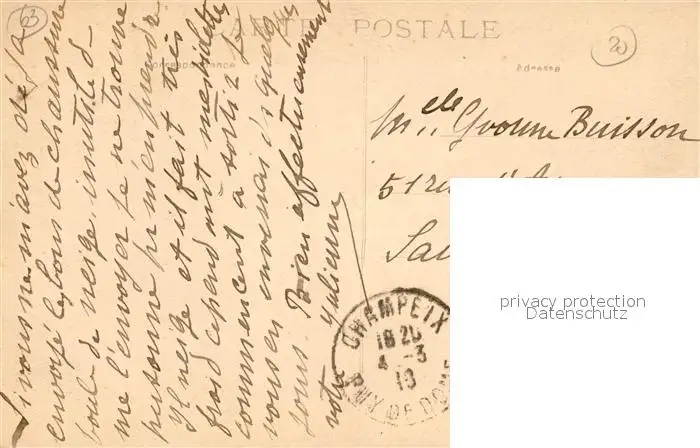 63
CARTE POSTALE
20
Correspondance
Adresse
Si vous ne m'avez déjà
envoyé le bons de chaussure
boule de neige, inutile de
me l'envoyer je ne trouve
personne pr m'en prendre
Il neige et il fait très
froid cependant mes
commencent a sortir
vous en enverrais d'ici quelques
jours. Bien affectueusement
votre Julienne
Melle Yvonne Buisson
51 rue
Sai
CHAMPEIX
18 25
4 -3
13
PUY DE DOME
privacy protection
Datenschutz